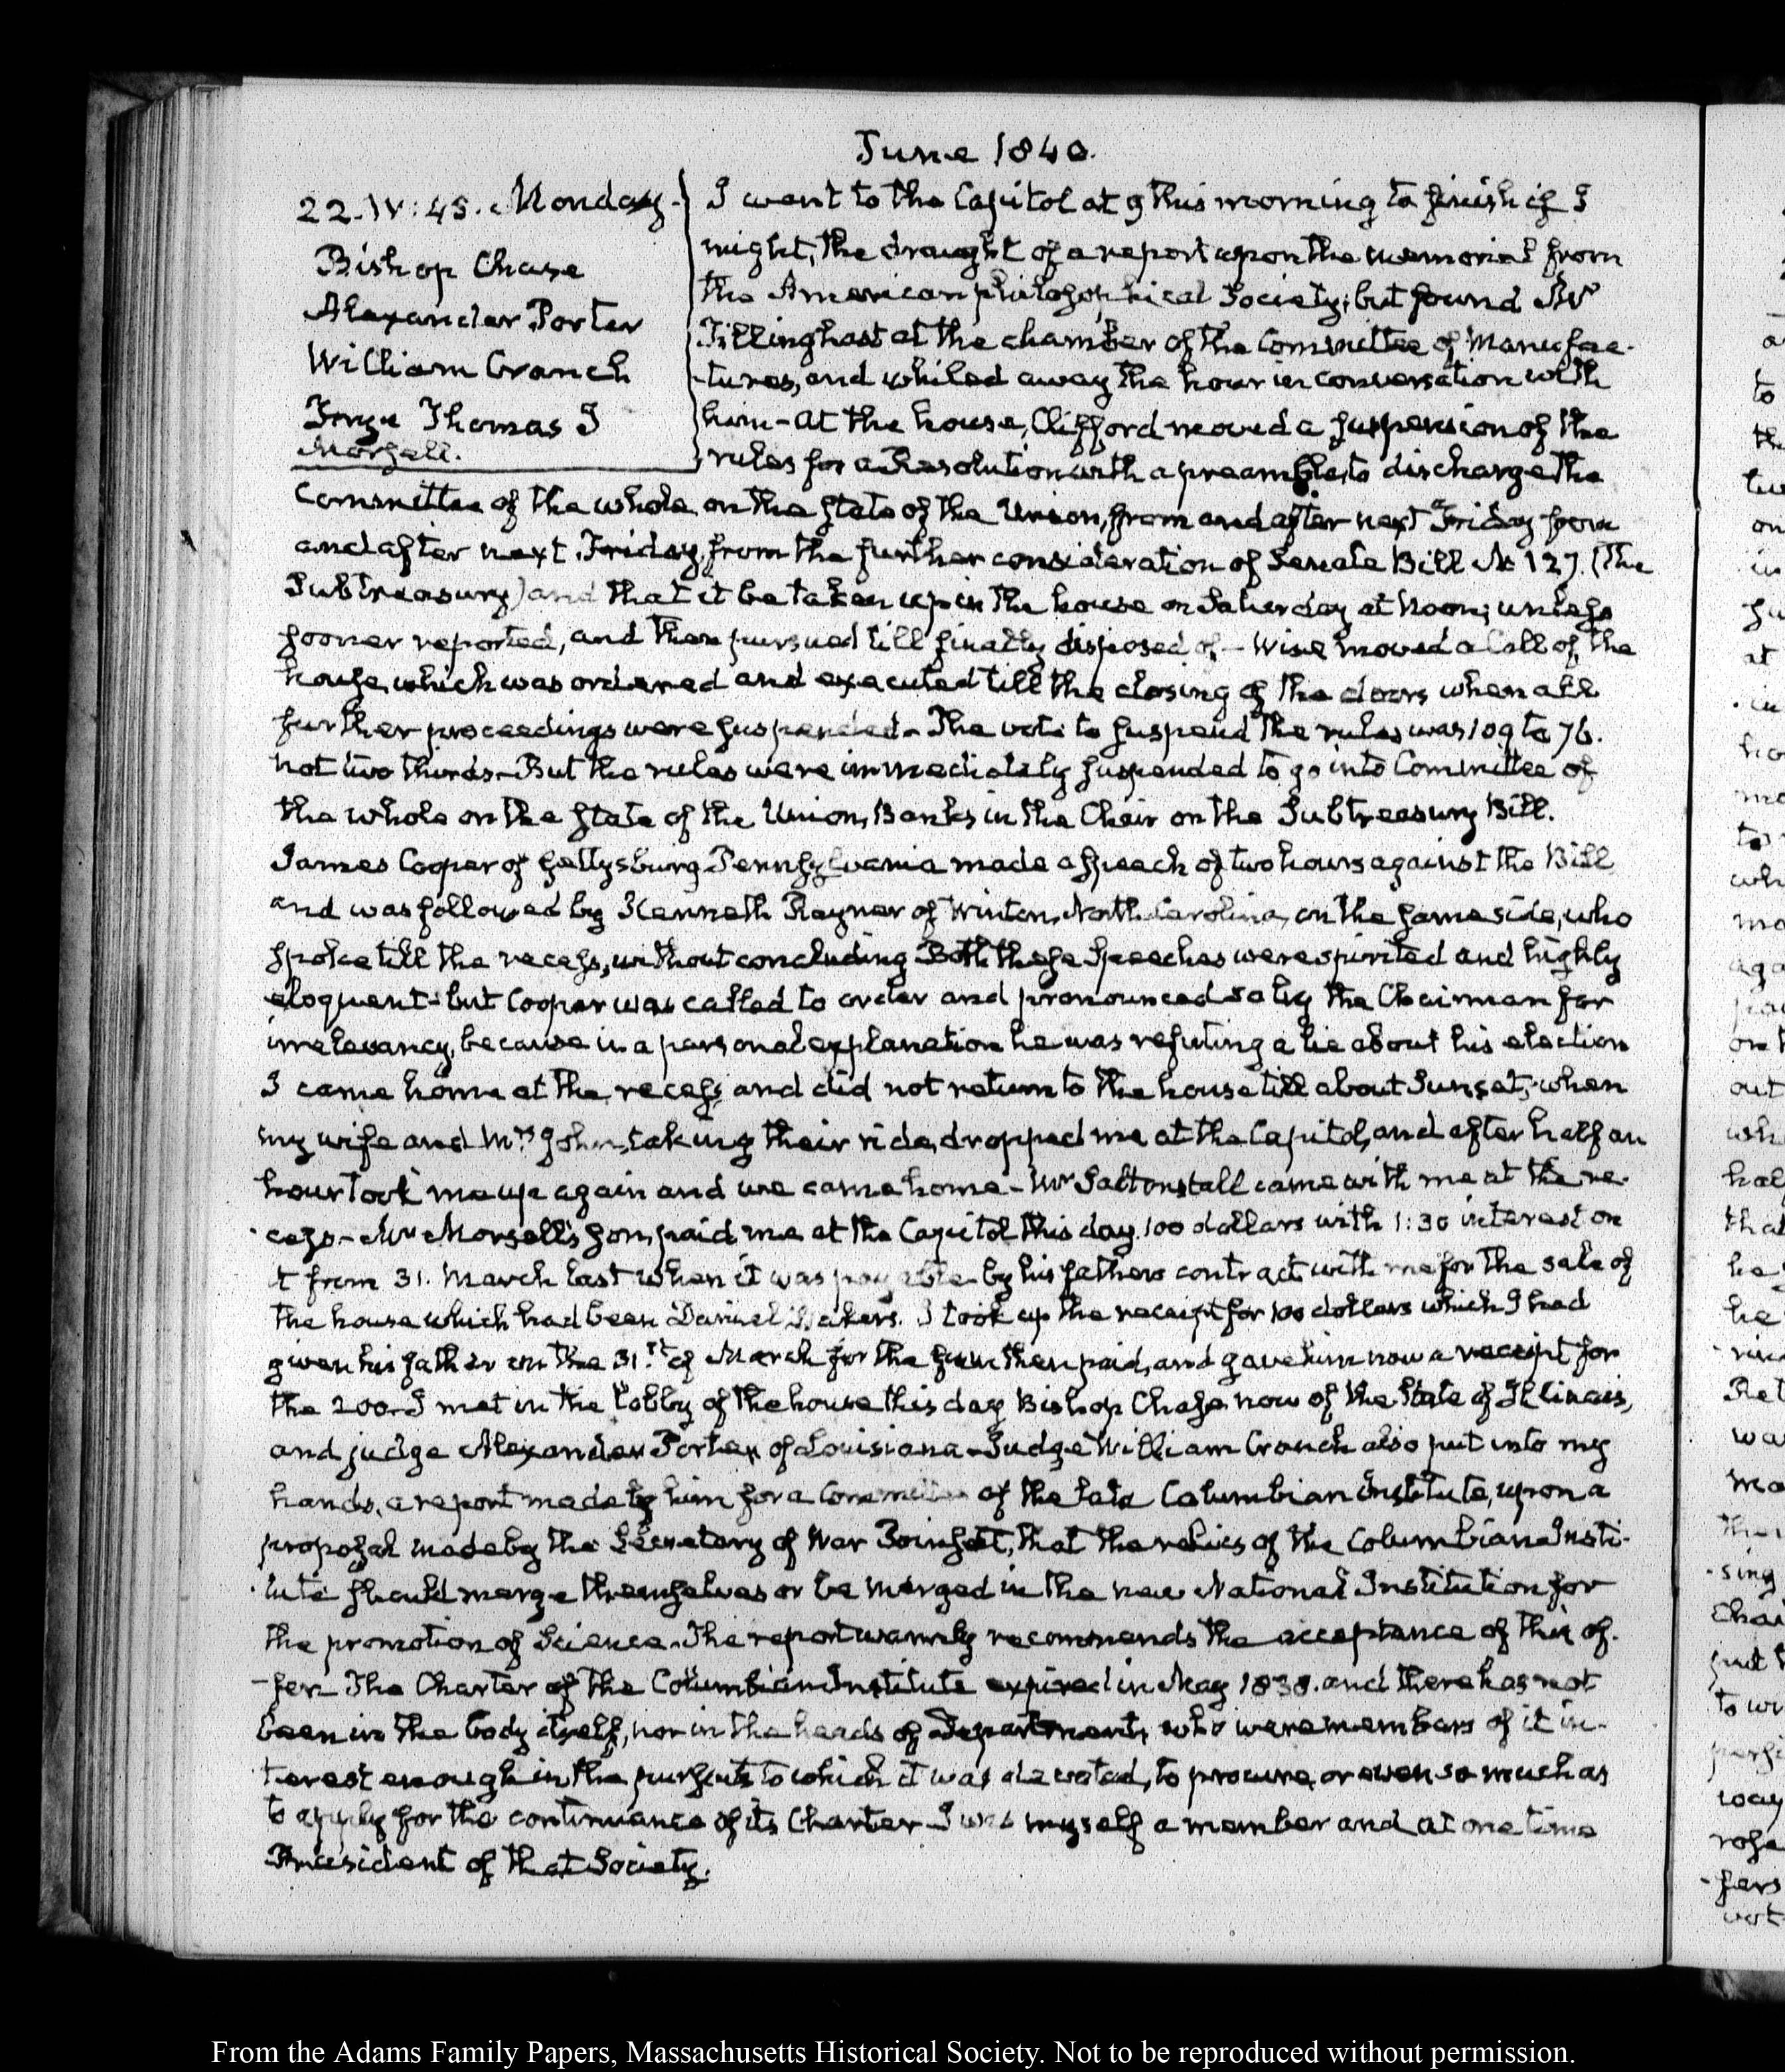 June 1840.
22. IV:45. Monday.
Bishop Chase
Alexander Porter
William Cranch
Thomas I
Morsell.
I went to the Capitol at 9 this morning to finish if I
might, the draught of a report upon the memorial from
the American philosophical Society; but found Mr
Tillinghast at the chamber of the Committee of Manufac-
-tures, and whiled away the hour in conversation with
him - At the house, Clifford moved a suspension of the
rules for a Resolution with a preamble, to discharge the
Committee of the whole on the State of the Union, from and after next Friday from
and after next Friday, from the further consideration of Senate Bill No 127. (The
Subtreasury) and that it be taken up in the house on Saturday at Noon; unless
sooner reported, and then pursued till finally disposed of - Wise moved a Call of the
house, which was ordered and executed till the closing of the doors when all
further proceedings were suspended - The vote to suspend the rules was 109 to 76.
not two thirds - But the rules were immediately suspended to go into Committee of
the whole on the State of the Union, Banks in the Chair on the Subtreasury Bill.
James Cooper of Gettysburg Pennsylvania made a speech of two hours against the Bill
and was followed by Kenneth Rayner of Winton, North Carolina, on the same side, who
spoke till the recess, without concluding Both these Speeches were spirited and highly
eloquent - but Cooper was called to order and pronounced so by the Chairman for
irrelevancy, because in a personal explanation he was refuting a lie about his election
I came home at the recess, and did not return to the house till about Sunset, when
my wife and Mrs John, taking their ride, dropped me at the Capitol, and after half an
hour took me up again and we came home - Mr Saltonstall came with me at the re-
-cess - Mr Morsell's son, paid me at the Capitol this day, 100 dollars with 1:30 interest on
it from 31. March last when it was payable by his fathers contract with me for the sale of
the house which had been Daniel Bakers. I took up the receipt for 100 dollars which I had
given his father on the 31.st of March for the sum then paid, and gave him now a receipt for
the 200. I met in the lobby of the house this day Bishop Chase, now of the State of Illinois,
and judge Alexander Porter of Louisiana - Judge William Cranch also put into my
hands, a report made by him for a Committee of the late Columbian Institute, upon a
proposal made by the Secretary of War Poinsett, that the relics of the Columbian Insti-
-tute should merge themselves or be merged in the new National Institution for
the promotion of Science. The report warmly recommends the acceptance of this of-
-fer. The Charter of the Columbian Institute expired in May 1838. and there has not
been in the body itself, nor in the heads of Departments, who were members of it in-
-terest enough in the pursuits to which it was devoted, to procure, or even so much as
to apply for the continuance of its Charter - I was myself a member and at one time
President of that Society.
From the Adams Family Papers, Massachusetts Historical Society. Not to be reproduced without permission.